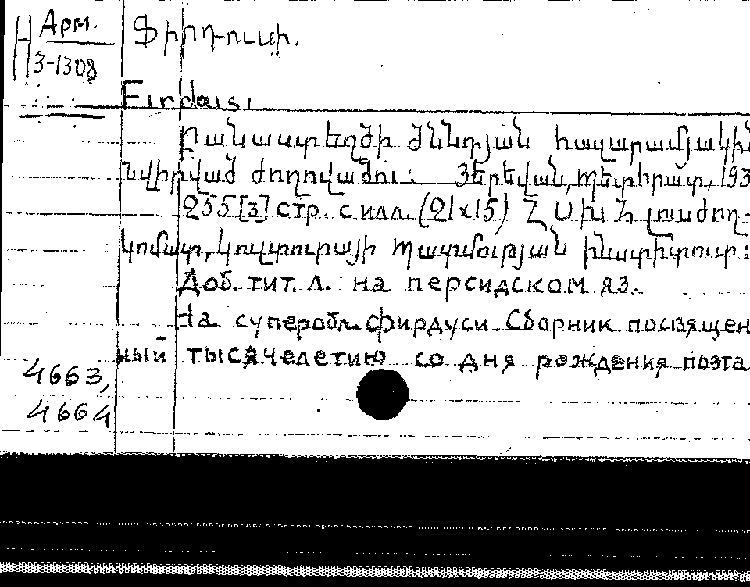 Арм.
3-1308
Ֆիրդուսի.
Firdousi
Բանաստեղծի ծննդյան հազարամյակին
նվիրված ժողովածու: Յերեվան, Պետհրատ, 193
255[3] стр. с илл. (21x15)
կոմատ, կուլտուրայի պատմության ինստիտուտ:
Доб. тит. л. на персидском яз.
На суперобл. Фирдуси Сборник посвящен
ный тысячелетию со дня рождения поэта
4663,
4664